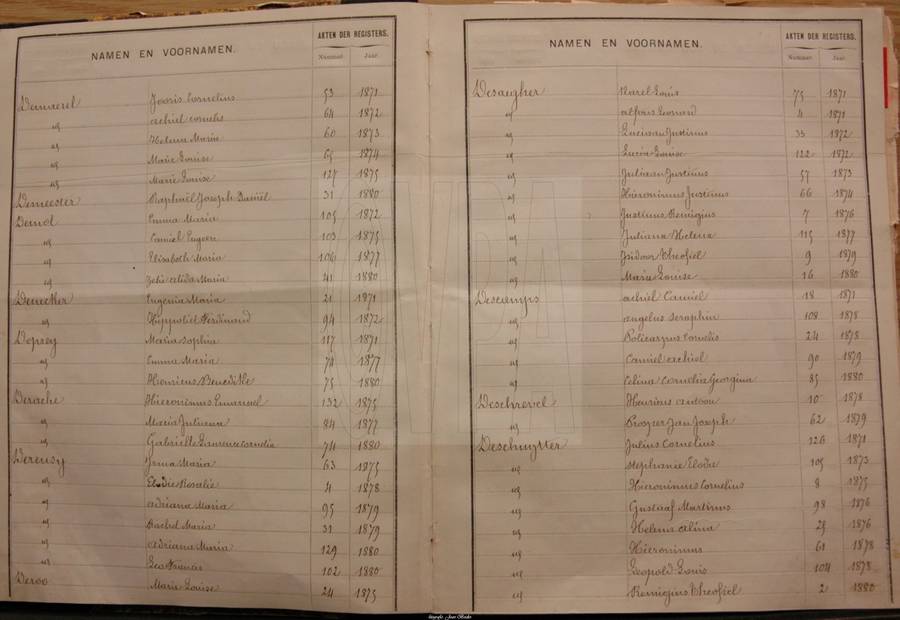 NAMEN EN VOORNAMEN. AKTEN DER REGISTERS.
Nummer. Jaar.
Demaerel Jooris Cornelius 53 1871
" achiel cornelis 64 1872
" Helena Maria 60 1873
" Marie Louise 65 1874
" Marie Louise 127 1875
Demeester Raphaël Joseph Daniël 31 1880
Demol Emma Maria 105 1872
" Camiel Eugeen 103 1875
" Elisabeth Maria 106 1877
" Zelie alida Maria 41 1880
Denecker Eugenia Maria 21 1871
" Hyppoliet Ferdinand 94 1872
Deprey Maria Sophia 117 1871
" Emma Maria 74 1877
" Henricus Benedikte 75 1880
Derache Hieronimus Emmanuel 132 1875
" Maria Juliena 84 1877
" Gabrielle Laurence Cornelia 74 1880
Dereusy Irma Maria 63 1875
" Elodie Rosalie 4 1878
" adriana Maria 95 1879
" Rachel Maria 31 1879
" adriana Maria 129 1880
" Leo Francis 102 1880
Deroo Marie Louise 24 1875
NAMEN EN VOORNAMEN. AKTEN DER REGISTERS.
Nummer. Jaar.
Desaegher Karel Louis 75 1871
" alfons Leonard 4 1871
" Luciaan Justinus 33 1872
" Lucia Louise 122 1872
" Juliaan Justinus 57 1873
" Hieronimus Justinus 66 1874
" Justinus Remigius 7 1876
" Juliana Helena 115 1877
" Isidoor Theofiel 9 1879
" Maria Louise 16 1880
Descamps achiel Camiel 18 1871
" angelus Seraphin 108 1878
" Policarpus Cornelis 24 1878
" Camiel achiel 90 1879
" Celina Cornelia Georgina 85 1880
Deschrevel Henricus antoon 10 1878
" Prosper Jan Joseph 62 1879
Deschuytter Julius Cornelius 126 1871
" stephanie Elodie 105 1873
" Hieronimus Cornelius 8 1875
" Gustaaf Martinus 98 1876
" Helena alina 25 1876
" Hieronimus 61 1878
" Leopold Louis 104 1878
" Remigius Theofiel 2 1880